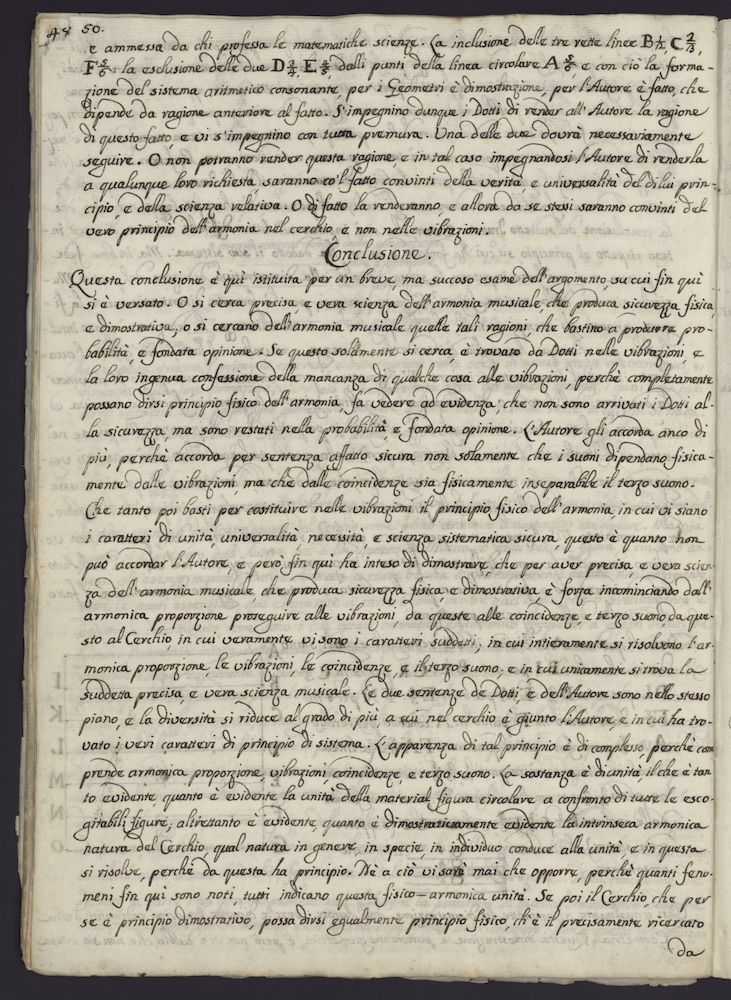 48 50.
e ammessa da chi professa le matematiche scienze. La inclusione delle tre rette linee B 1/2, C 2/3,
F 5/6: la esclusione delle due D 3/4, E 4/5, dalli punti della linea circolare A 5/6 e con ciò la forma-
zione del sistema aritmetico consonante, per i Geometri è dimostrazione, per l'Autore è fatto, che
dipende da ragione anteriore al fatto. S'impegnino dunque i Dotti di render all'Autore la ragione
di questo fatto, e vi s'impegnino con tutta premura. Una delle due dovrà necessariamente
seguire. O non potranno render questa ragione, e in tal caso impegnandosi l'Autore di renderla
a qualunque loro richiesta, saranno co'l fatto convinti della verità, e universalità del di lui prin-
cipio, e della scienza relativa. O di fatto la renderanno, e allora da se stessi saranno convinti del
vero principio dell'armonia nel cerchio, e non nelle vibrazioni.
Conclusione.
Questa conclusione è quì istituita per un breve, ma succoso esame dell'argomento, su cui fin quì
si è versato. O si cerca precisa, e vera scienza dell'armonia musicale, che produca sicurezza fisica,
e dimostrativa, o si cercano dell'armonia musicale quelle tali ragioni, che bastino a produrre pro-
babilità, e fondata opinione. Se questo solamente si cerca, è trovato da Dotti nelle vibrazioni, e
la loro ingenua confessione della mancanza di qualche cosa alle vibrazioni, perchè completamente
possano dirsi principio fisico dell'armonia, fa vedere ad evidenza, che non sono arrivati i Dotti al-
la sicurezza, ma sono restati nella probabilità e fondata opinione. L'Autore gli accorda anco di
più, perchè accorda per sentenza affatto sicura non solamente che i suoni dipendano fisica-
mente dalle vibrazioni, ma che dalle coincidenze sia fisicamente inseparabile il terzo suono.
Che tanto poi basti per costituire nelle vibrazioni il principio fisico dell'armonia, in cui vi siano
i caratteri di unità, universalità, necessità, e scienza sistematica sicura, questo è quanto non
può accordar l'Autore, e però fin quì ha inteso di dimostrare, che per aver precisa, e vera scien-
za dell'armonia musicale, che produca sicurezza fisica, e dimostrativa è forza incominciando dall'
armonica proporzione proseguire alle vibrazioni, da queste alle coincidenze, e terzo suono, da que-
sto al Cerchio in cui veramente vi sono i caratteri suddetti, in cui intieramente si risolvono l'ar-
monica proporzione, le vibrazioni, le coincidenze, e il terzo suono, e in cui unicamente si trova la
suddetta precisa, e vera scienza musicale. Le due sentenze de Dotti, e dell'Autore sono nello stesso
piano, e la diversità si riduce al grado di più a cui nel cerchio è giunto l'Autore, e in cui ha tro-
vato i veri caratteri di principio di sistema. L'apparenza di tal principio è di complesso perchè com
prende armonica proporzione, vibrazioni coincidenze, e terzo suono. La sostanza è di unità, il che è tan
to evidente, quanto è evidente la unità della material figura circolare a confronto di tutte le esco-
gitabili figure; altrettanto è evidente, quanto è dimostrativamente evidente la intrinseca armonica
natura del Cerchio, qual natura in genere, in specie, in individuo conduce alla unità, e in questa
si risolve, perchè da questa ha principio. Nè a ciò vi sarà mai che opporre, perchè quanti feno-
meni fin quì sono noti, tutti indicano questa fisico-armonica unità. Se poi il Cerchio, che per
se è principio dimostrativo, possa dirsi egualmente principio fisico, ch'è il precisamente ricercato
da